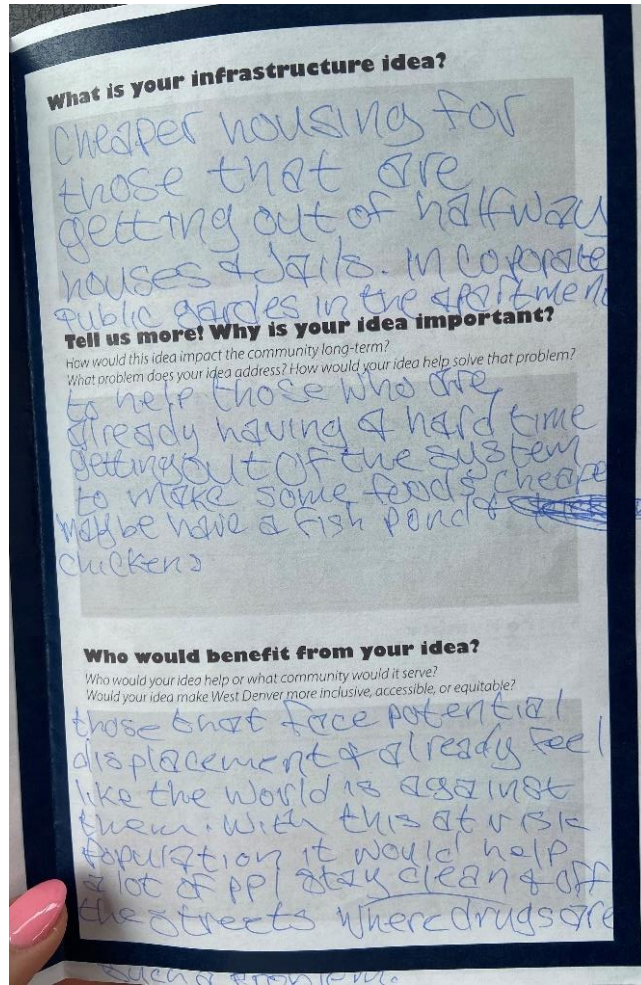 What is your infrastructure idea?
Cheaper housing for
those that are
getting out of halfway
houses & Jails. Incoporate
public gardes in the apartment
Tell us more! Why is your idea important?
How would this idea impact the community long-term?
What problem does your idea address? How would your idea help solve that problem?
to help those who are
already having a hard time
getting out of the system
to make some foods cheaper
maybe have a fish pond &
chickens
Who would benefit from your idea?
Who would your idea help or what community would it serve?
Would your idea make West Denver more inclusive, accessible, or equitable?
those that face potential
displacement & already feel
like the world is against
them. With this at risk
population it would help
a lot of ppl stay clean & off
the streets where drugs are
such a problem.